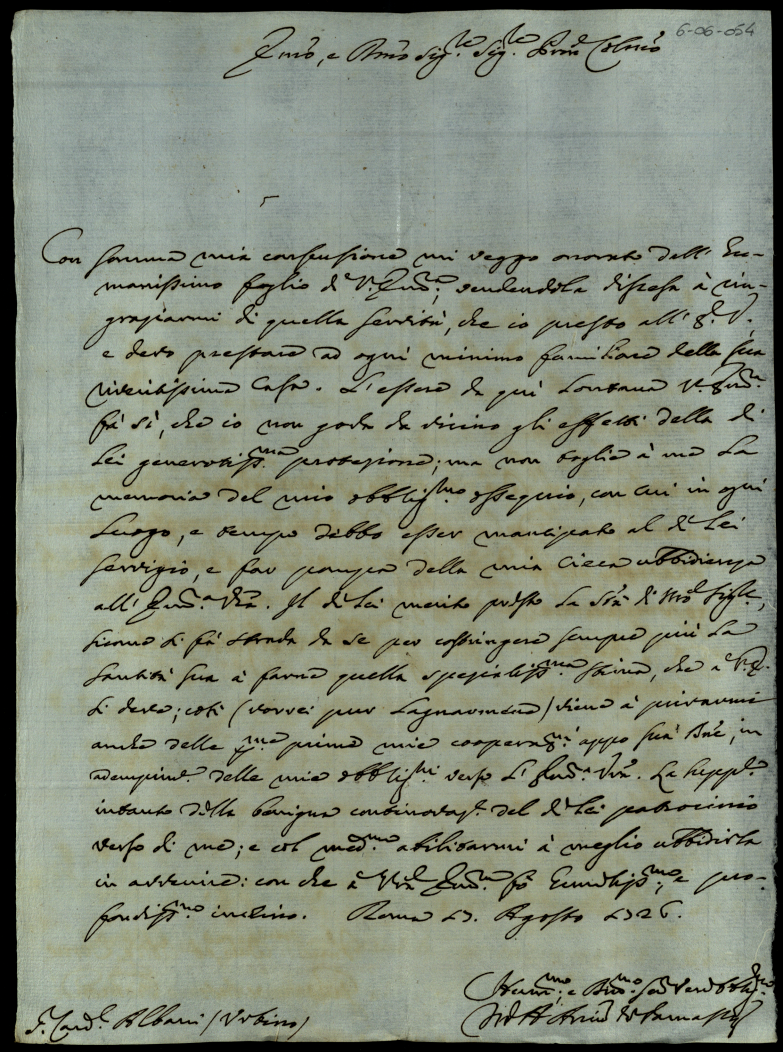 6-06-054
Emo, e Rmo Sig.re Sig.re Pron Colmo
Con somma mia confusione mi veggo onorato dell' Hu-
manissimo foglio di V. Emza, rendendola discesa à rin-
graziarmi di quella servitù, che io presto all' E. V.
e devo prestare ad ogni minimo familiare della sua
riveritissima Casa. L'essere da qui Lontana V. Emza
fà sì, che io non goda da vicino gli effetti della di
Lei generosiss.ma protezione; ma non toglie à me La
memoria del mio obblig.mo ossequio, con cui in ogni
Luogo, e tempo debbo esser mancipato al di Lei
servigio, e far pompa della mia cieca ubbidienza
all' Emza Vra. Il di Lei merito presso La Stà di Nro Sig.re,
siccome si fà strada da se per costringere sempre più La
Santità Sua à farne quella spezialiss.ma stima, che à V. E.
si deve; così (vorrei pur Lagnarmene) viene à privarmi
anche delle prime mie cooperazni appo Sua Bne, in
adempimto delle mie obbligni verso L' Emza Vra. La supplo
intanto della benigna continovaze del di Lei patrocinio
verso di me; e col med.mo abilitarmi à meglio ubbidirla
in avvenire: con che à Vra Emza fo Humiliss.mo, e pro-
fondiss.mo inchino. Roma 17. Agosto 1726.
Hum.mo, e Dmo Ser Vero Obblig.mo
S.r Card.l Albani (Urbino)